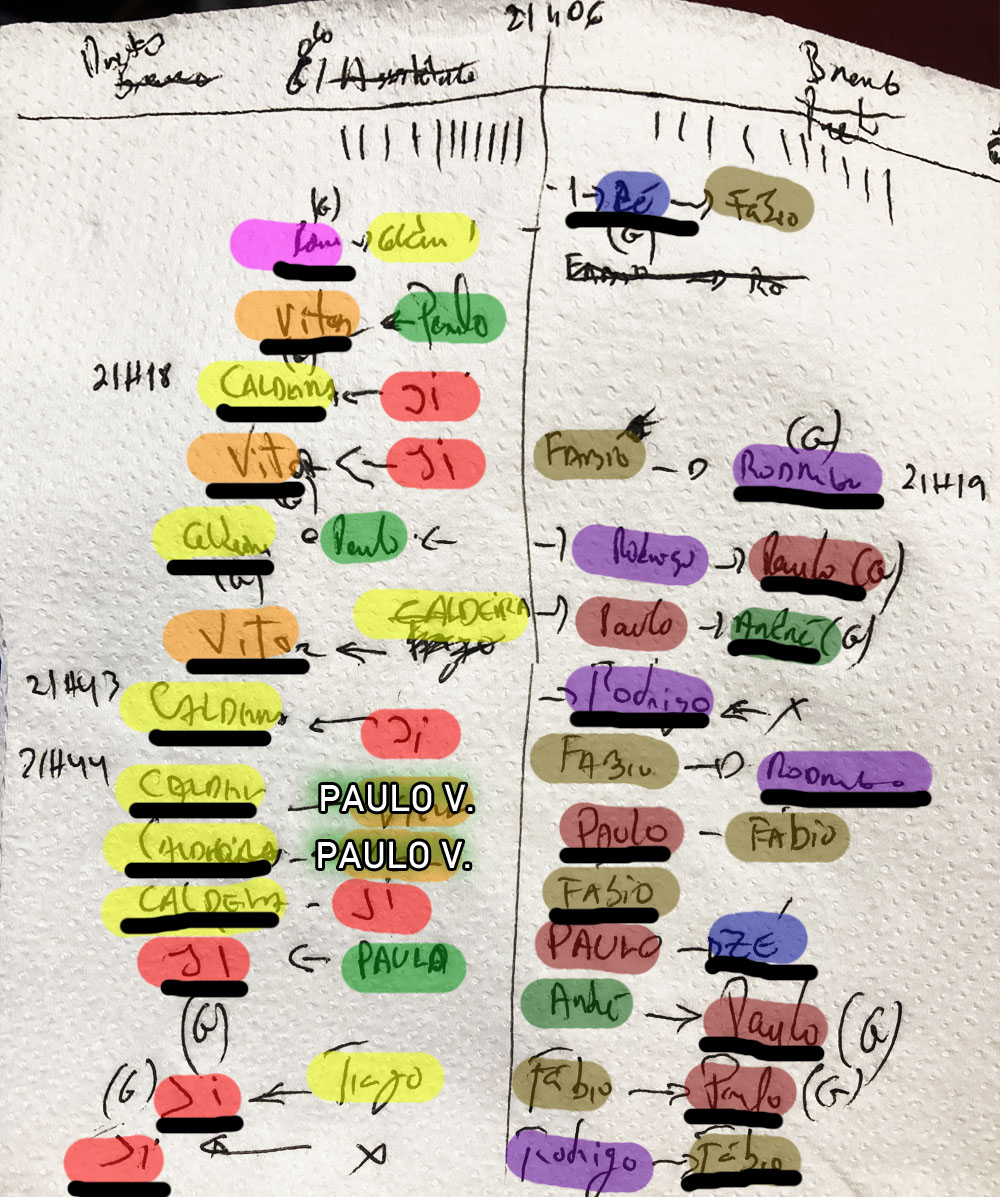 21H06
Preto
Branco
Branco
Preto
Zé → Fábio
(G)
(G)
Fábio → Ro
Vitor ← Paulo
21H18 CALDEIRA ← Ji
Vitor ← Ji
FABIO → RODRIGO (G) 21H19
Paulo ←
→ Rodrigo → Paulo (G)
Vitor ← CALDEIRA
→ Paulo → André (G)
21H43 CALDEIRA ← Ji
→ Rodrigo ← X
21H44 CALDEIRA - PAULO V.
FABIO → RODRIGO
CALDEIRA - PAULO V.
PAULO - FÁBIO
CALDEIRA - Ji
FABIO
JI ← PAULO
PAULO → ZE
(G)
André → Paulo (G)
(G) Ji ← Tiago
Fábio → Paulo (G)
Ji ← X
Rodrigo → Fábio